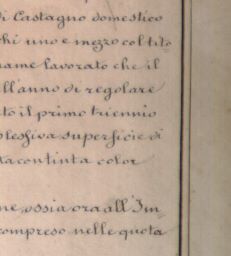 di Castagno domestico
chi uno e mezzo col tito
name lavorato che il
ll'anno di regolare
to il primo triennio
plessiva superficie di
ta con tinta color
ne, ossia ora all'Im
compreso nelle quota